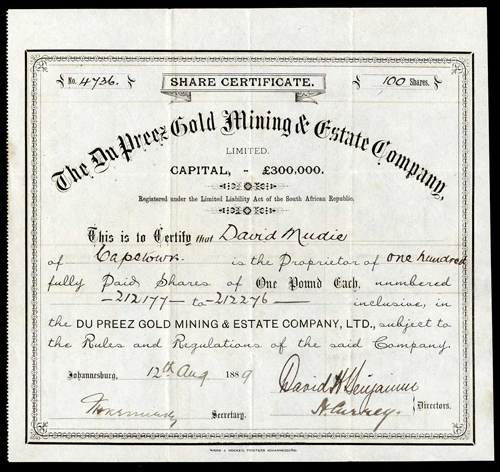 No. 4736. SHARE CERTIFICATE. 100 Shares.
The Du Preez Gold Mining & Estate Company,
LIMITED.
CAPITAL, - £300,000.
Registered under the Limited Liability Act of the South African Republic.
This is to Certify that David Mudie
of Capetown is the Proprietor of one hundred
fully Paid Shares of One Pound Each, numbered
-212177- to -212276- inclusive, in
the DU PREEZ GOLD MINING & ESTATE COMPANY, LTD., subject to
the Rules and Regulations of the said Company.
Johannesburg, 12th Aug 1889
David H Benjamin
H. Currey.
Directors.
Secretary.